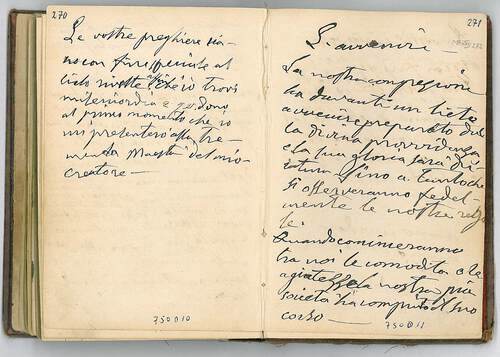 270
Le vostre preghiere sia-
no con fine speciale al
cielo rivolte affinchè io trovi
misericordia e perdono
al primo momento che io
mi presenterò alla tre-
menda Maestà del mio
creatore -
750D10
271
L'avvenire -
La nostra congregazione
ha davanti un lieto
avvenire preparato dal
la divina provvidenza
e la sua gloria sarà du-
ratura sino a tanto che
si osserveranno fedel-
mente le nostre rego
le.
Quando cominceranno
tra noi le comodità e le
agiatezze la nostra pia
società ha compiuto il suo
corso -
750D11